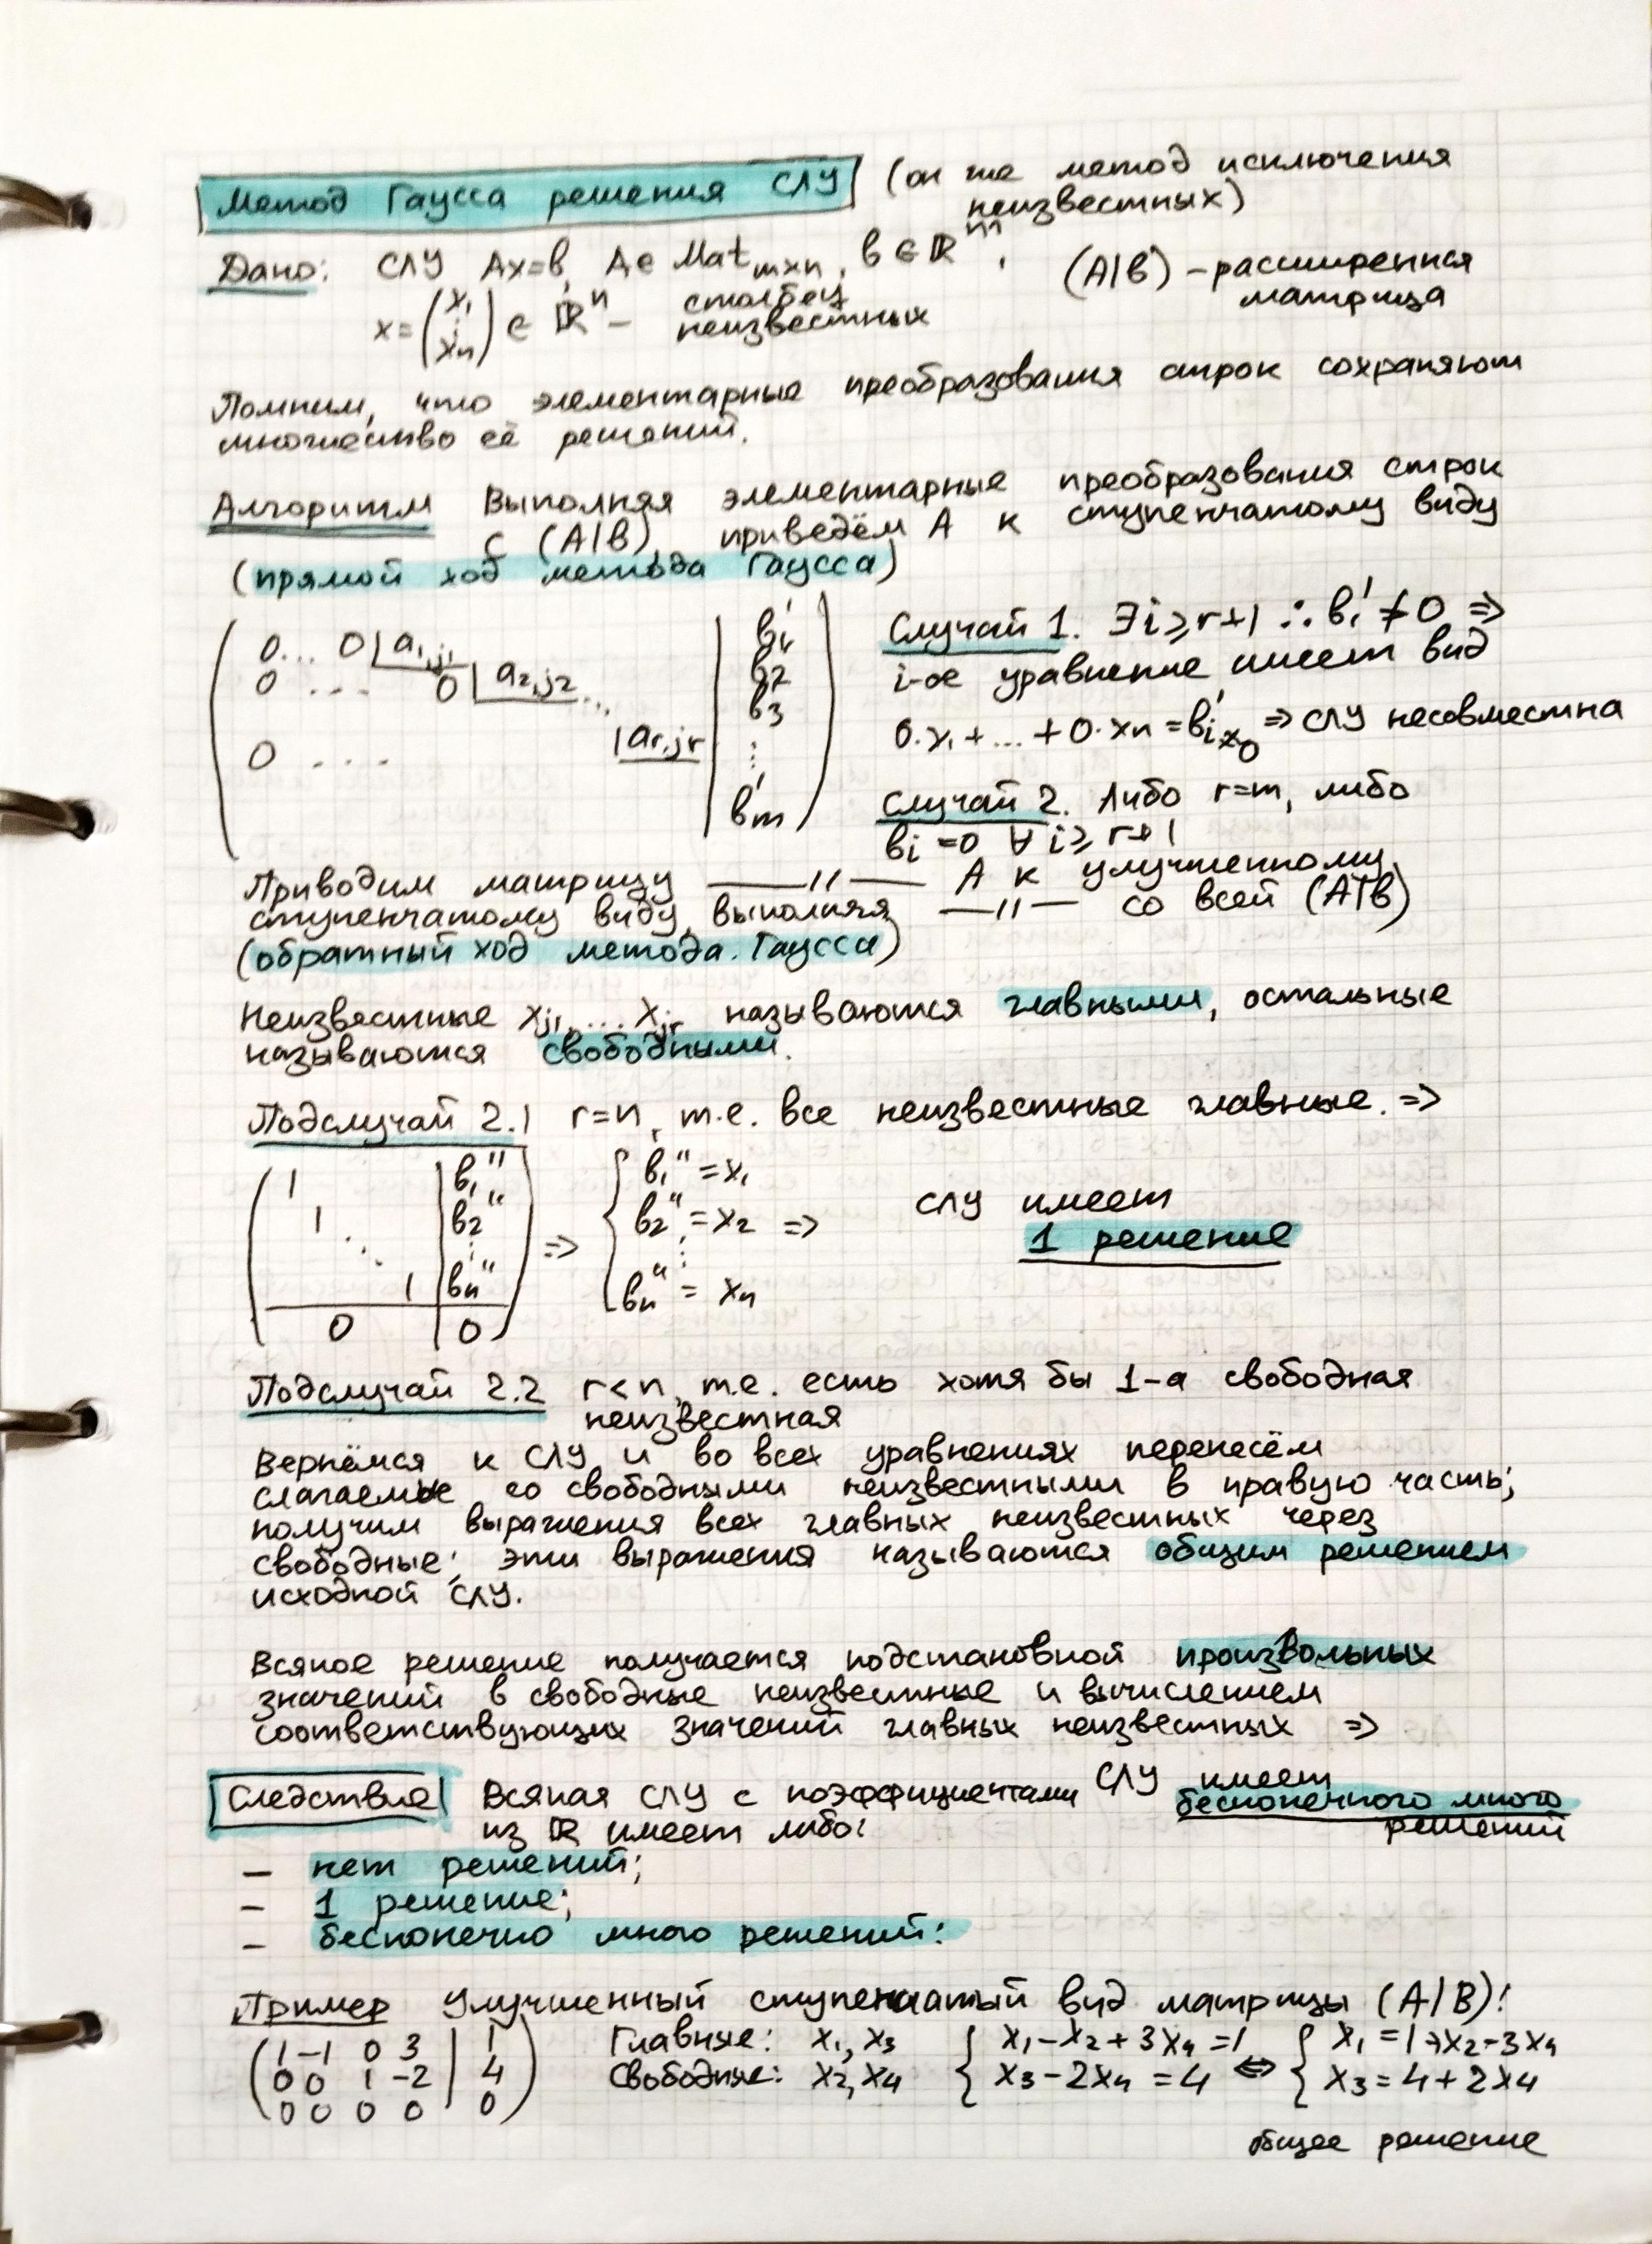 Метод Гаусса решения СЛУ (он же метод исключения
неизвестных)
Дано: СЛУ Ax=b, A∈ Mat m×n, b∈ℝ^m, (A|b) – расширенная
матрица
x = (x₁ ⋮ xₙ) ∈ ℝⁿ – столбец
неизвестных
Помним, что элементарные преобразования строк сохраняют
множество её решений.
Алгоритм Выполняя элементарные преобразования строк
с (A|b), приведём A к ступенчатому виду
(прямой ход метода Гаусса)
0... 0 | a₁,j₁ | b₁'
0 ... 0 | a₂,j₂ ... | b₂'
b₃
0 ... | ar,jr | ⋮
bm'
Случай 1. ∃i≥r+1 : bi' ≠ 0 ⇒
i-ое уравнение имеет вид
0·x₁+...+0·xn = bi' ⇒ СЛУ несовместна
Случай 2. Либо r=m, либо
bi =0 ∀ i≥r+1
Приводим матрицу —//— A к улучшенному
ступенчатому виду, выполняя —//— со всей (A|b)
(обратный ход метода Гаусса)
Неизвестные xj₁,... xjr называются главными, остальные
называются свободными.
Подслучай 2.1 r=n, т.е. все неизвестные главные. ⇒
1 | b₁''
1 | b₂''
⋱ | ⋮
1 | bn''
0 | 0
⇒ { b₁'' = x₁
b₂'' = x₂ ⇒
⋮
bn'' = xn
СЛУ имеет
1 решение
Подслучай 2.2 r<n, т.е. есть хотя бы 1-а свободная
неизвестная
Вернёмся к СЛУ и во всех уравнениях перенесём
слагаемые со свободными неизвестными в правую часть;
получим выражения всех главных неизвестных через
свободные; эти выражения называются общим решением
исходной СЛУ.
Всякое решение получается подстановкой произвольных
значений в свободные неизвестные и вычислением
соответствующих значений главных неизвестных ⇒
СЛУ имеет
бесконечного много
решений
Следствие Всякая СЛУ с коэффициентами
из ℝ имеет либо:
– нет решений;
– 1 решение;
– бесконечно много решений:
Пример Улучшенный ступенчатый вид матрицы (A|B):
1 -1 0 3 | 1
0 0 1 -2 | 4
0 0 0 0 | 0
Главные: x₁, x₃
Свободные: x₂, x₄
{ x₁-x₂+3x₄=1
x₃-2x₄=4
⇔ { x₁=1+x₂-3x₄
x₃=4+2x₄
общее решение